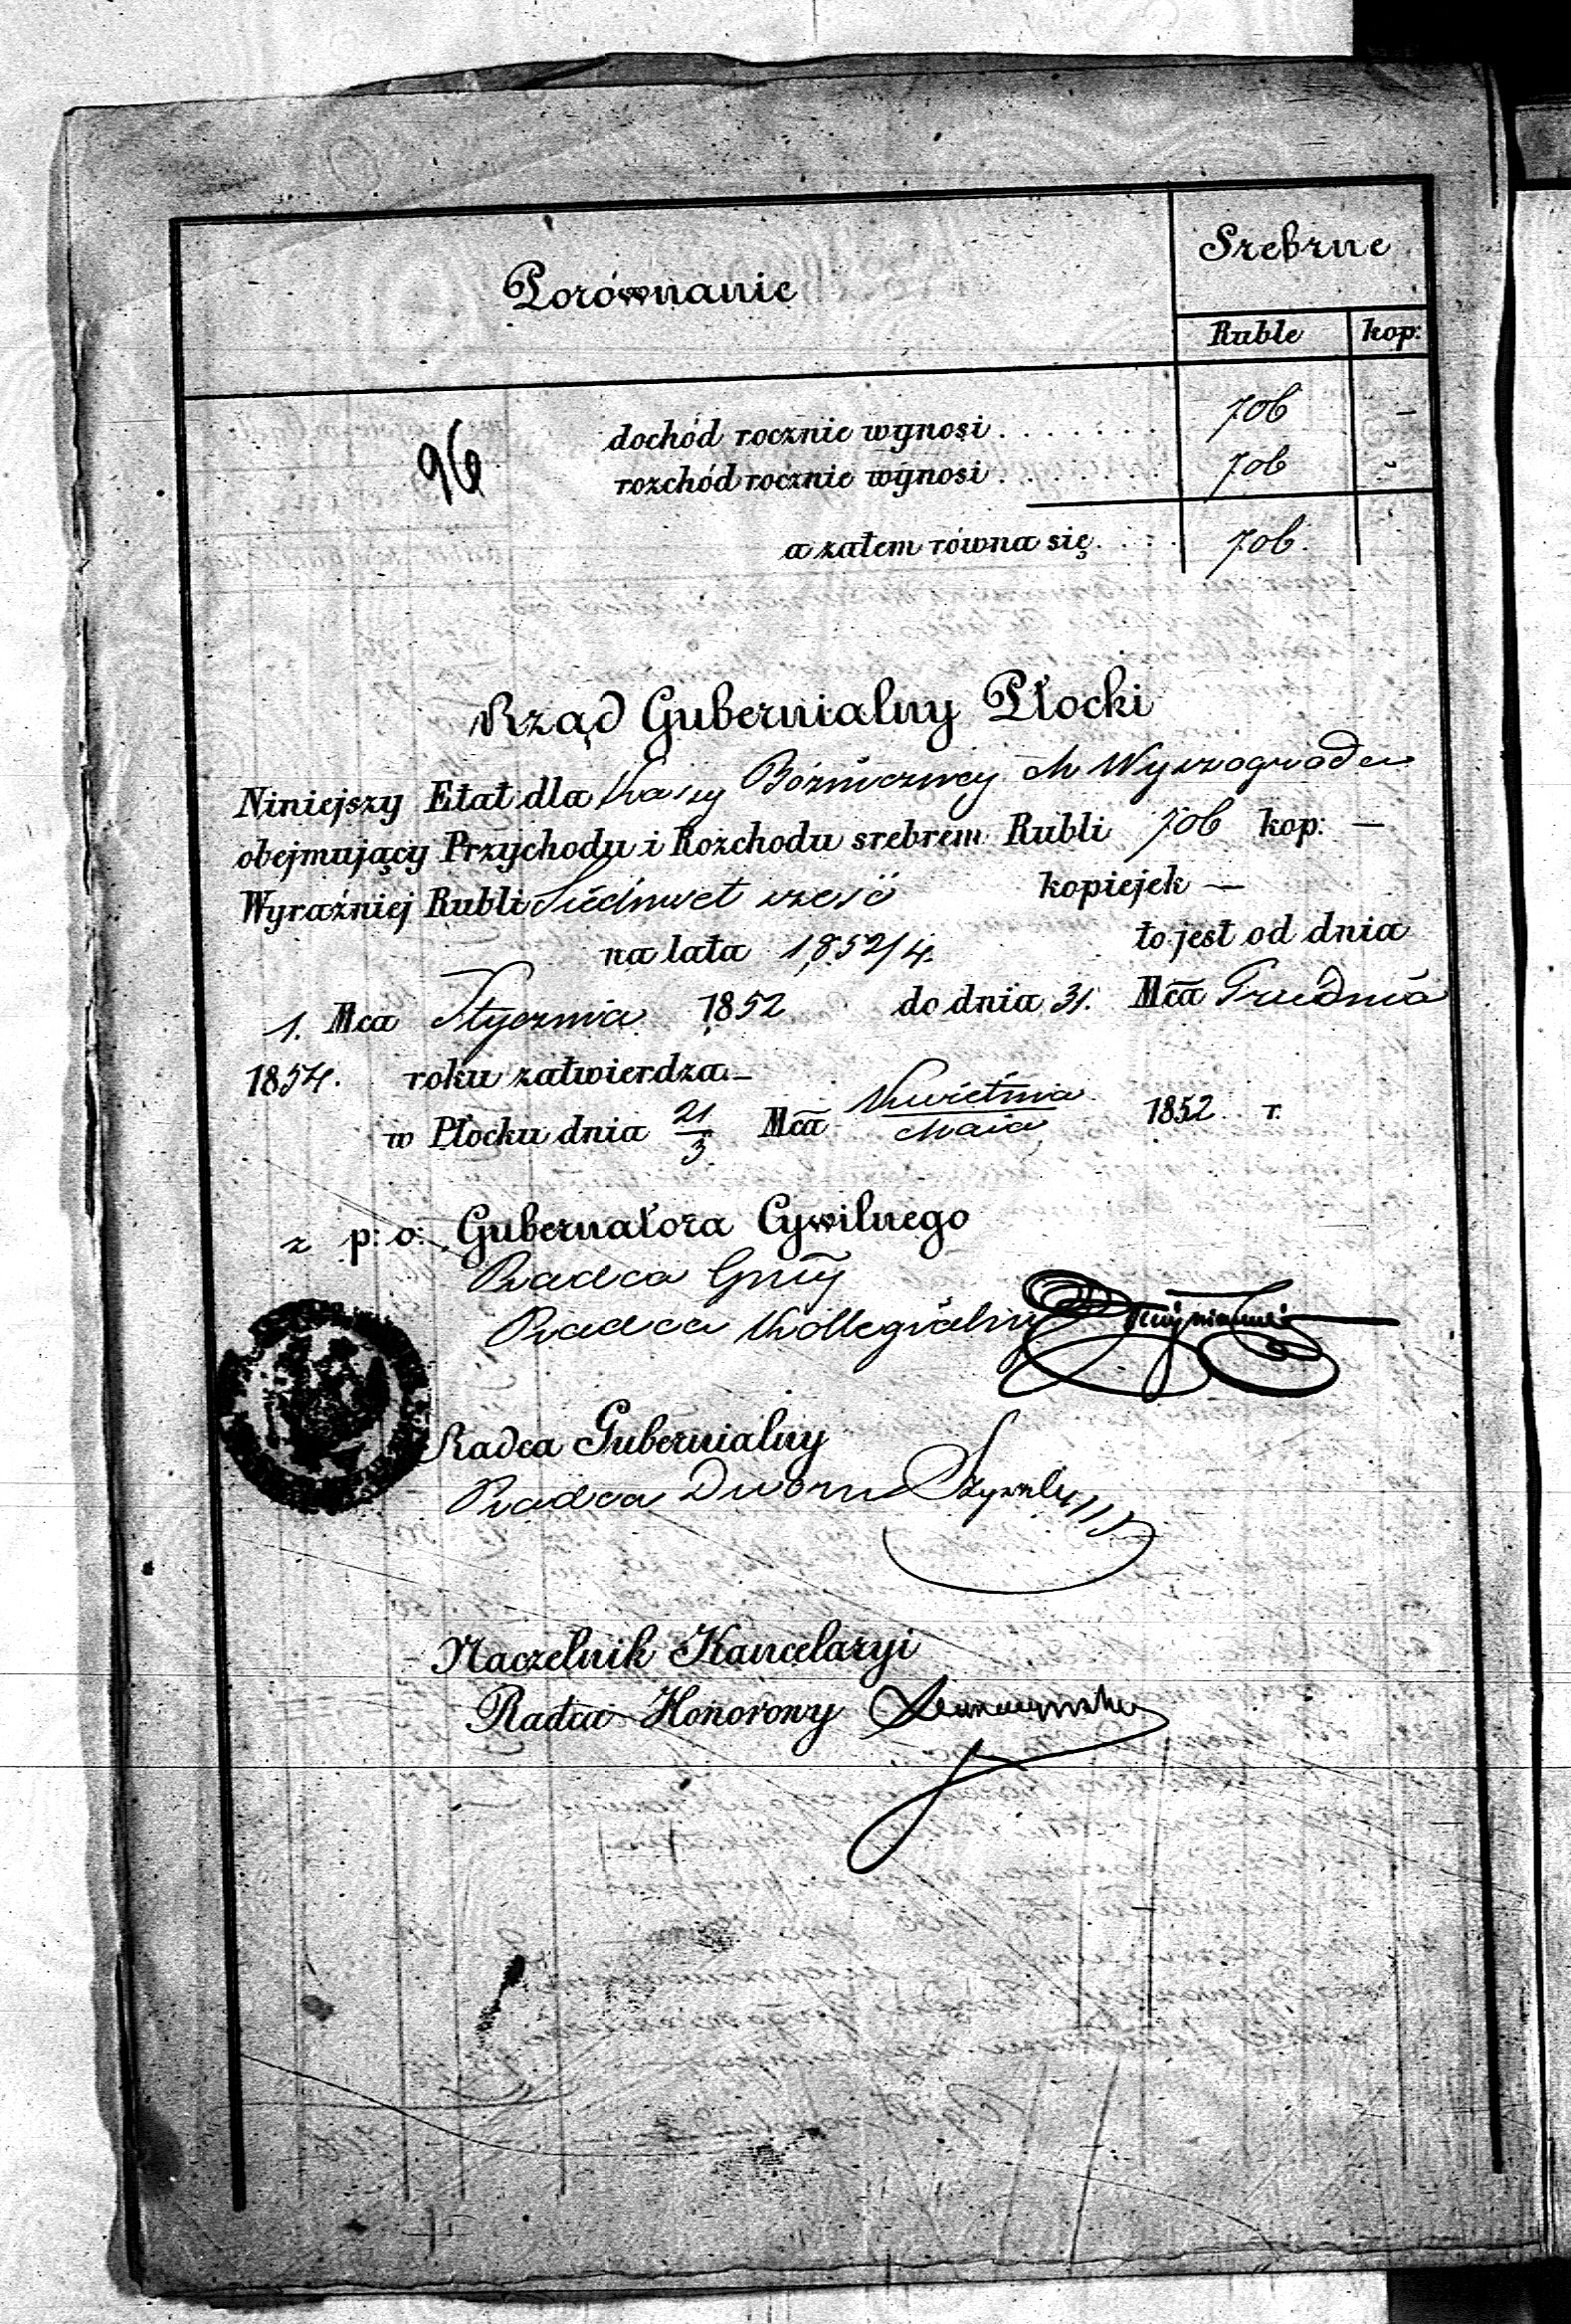 Porównanie
Srebrne
Ruble kop:
96
dochód rocznie wynosi . . . . . . . 706 -
rozchód rocznie wynosi . . . . . . . 706 -
a zatem równa się . . . . 706.
Rząd Gubernialny Płocki
Niniejszy Etat dla Kassy Bóżniczney M Wyszogrodu
obejmujący Przychodu i Rozchodu srebrem Rubli 706 kop: —
Wyraźniej Rubli Siedmset sześć kopiejek —
na lata 1852/4. to jest od dnia
1. Mca Stycznia 1852 do dnia 31. Mca Grudnia
1854. roku zatwierdza.—
w Płocku dnia 21/3 Mca Kwietnia/Maia 1852 r.
z p: o: Gubernatora Cywilnego
Radca Gniy
Radca Kollegialny
Radca Gubernialny
Radca Dworu
Naczelnik Kancelaryi
Radca Honorowy